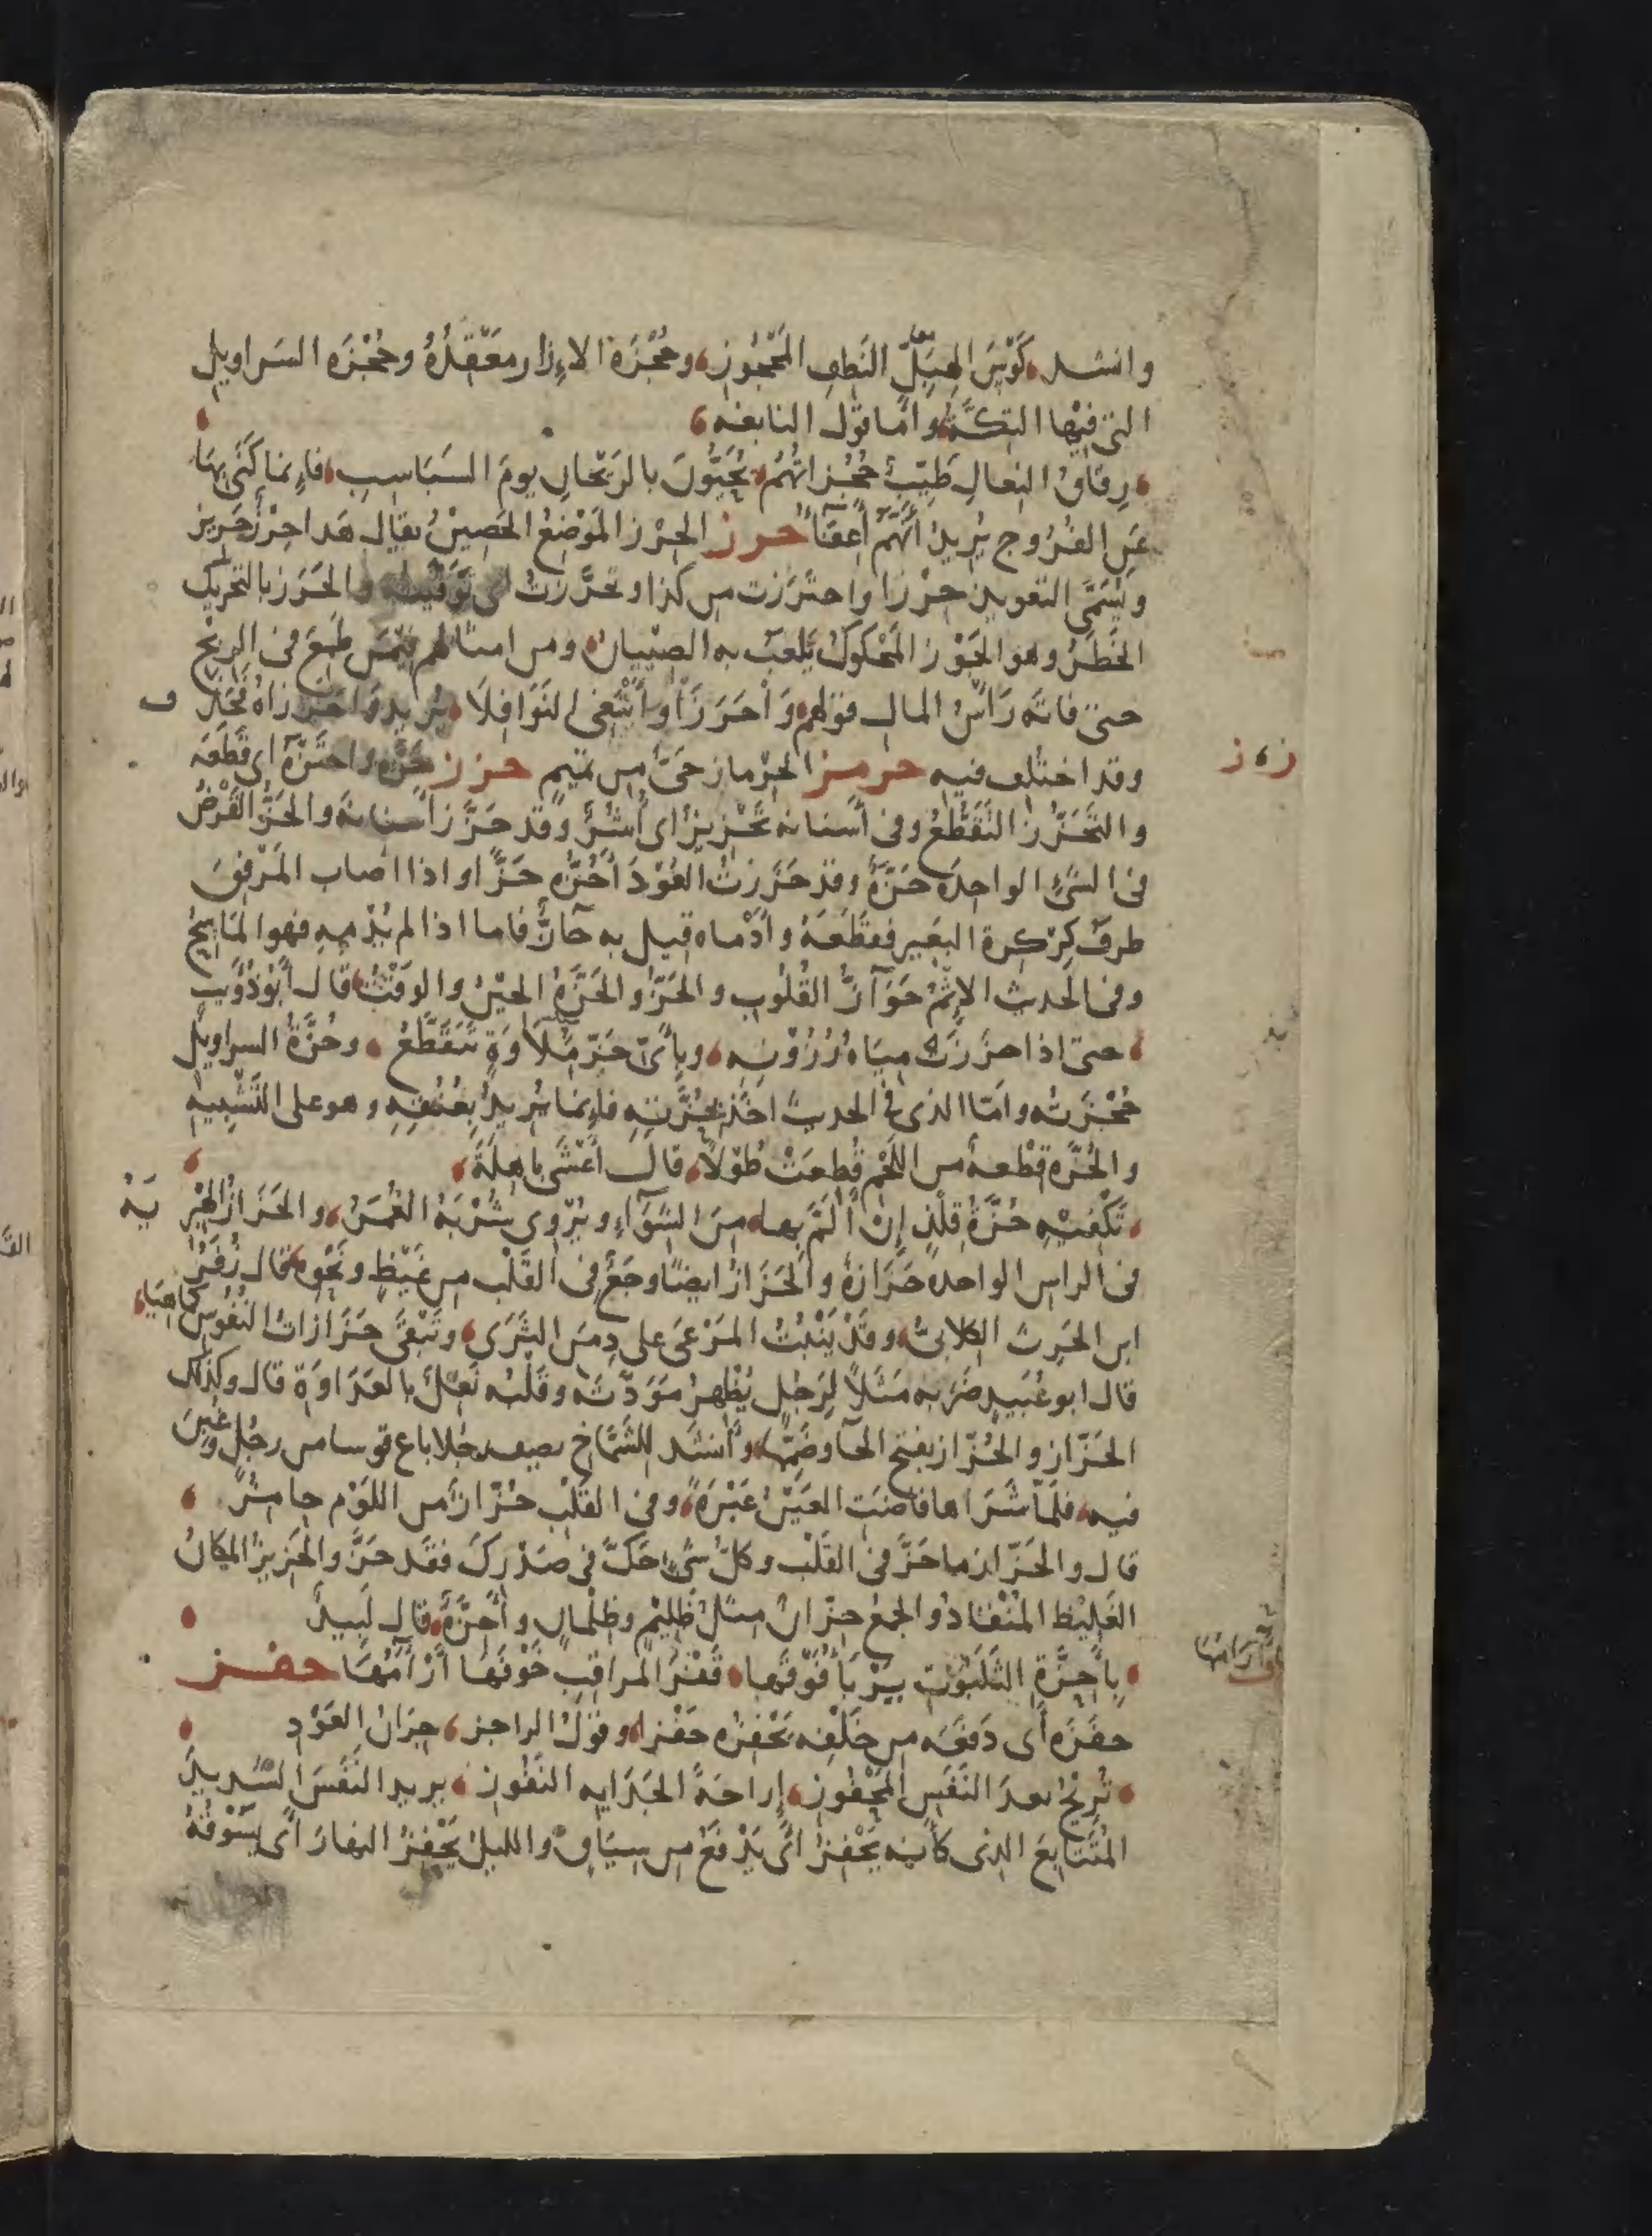 وانشد كَوْسَ الهِبَلِّ النَطِفِ المَحْجُوزِ، وحُجْزَة الاِزار مَعْقِدُهُ وحُجْزَة السَراويل
التى فيها التِكَّةُ، وامّا قول النابغه،
، رِقاقُ النِعالِ طَيِّبٌ حُجُزاتُهُم، يُحَيُّونَ بالرَيْحانِ يومَ السَبَاسِبِ، فاِنما كَنَى بهَا
عَنِ الفُرُوج يُرِيدُ انّهُمْ اَعِفَّاءُ حرز الحِرْز المَوْضِعُ الحَصِيْنُ يقال هَذا حِرْزٌ حَرِيز
ويُسَمَّى التعويذ حِرْزا واحتَرَزت من كذا وتحَرَّزتُ اى تَوَقَّيْتُه والحَرَز بالتحريك
الخَطَرُ وهو الجَوْز المَحْكوكُ يَلْعَبُ به الصِبْيانُ، ومن امثالهم فيمَن طَمِعَ فى الرِبْح
حتى فاتَه رَاْسُ المال قولهم وَاحَرَزَا واَبْتَغِى النَوَافِلَا، يُريد وَاحَرَزَاهُ فحَذف
وقد اختُلف فيه حرمز الحِرْماز حَىٌّ من تميم حزز حَزَّه واحتَزّهُ اى قَطَعَه
والتَحَزُّزُ التَقَطُّعُ وفى اَسنانه تَحْزِيزٌ اى اُشُرٌ وقد حَزَّزَ اسنانهُ والحَزُّ الفَرْضُ
فى الشَىْءِ الواحدة حَزَّةٌ وقد حَزَزتُ العُوْدَ اَحُزُّه حَزًّا واذا اصاب المَرْفِقَ
طرفُ كِرْكرة البعير فقَطَعَهُ واَدْماه قيل به حَازٌّ فاما اذا لم يُدْمِهِ فهو المَاسِحُ
وفى الحَديث الاِثْمُ حَوَازُّ القُلُوب والحَزُّ والحَزَّةُ الحِيْنُ والوَقْتُ، قال اَبُو ذُؤَيب
، حتى اذا حَزَزَتْ مِيَاهُ رُزُوْنِهِ، وباَىِّ حَزِّ مَلَاوَةٍ تتَقَطَّعُ، وحُزَّةُ السراويل
حُجْزَتُه وامّا الذى فى الحديث اخَذ بحُزَّتِهِ فاِنما يُريدُ بِعُنُقِهِ وهو على التَشْبِيهِ
والحُزَّه قِطْعةٌ من اللَحْم قُطِعَتْ طُوْلًا، قال اَعْشَى باهِلَةَ،
، تَكْفِيْهِ حُزَّةُ فِلْذٍ اِنْ اَلَمَّ بها، مِنَ الشِوَاءِ ويُرْوِى شُرْبَهُ الغُمَرُ، والحَزَازُ الهِبْرِيَةُ
فى الراس الواحدة حَزَازَةٌ والحَزَازُ ايضًا وجَعٌ فى القَلْب من غَيْظٍ ونَحْوِه، قال زُفَرُ
ابن الحَرِث الكلابىُّ، وقَدْ يَنْبُتُ المَرْعَى على دِمَنِ الثَرَى، وتَبْقَى حَزَازاتُ النُفُوسِ كما هيا،
قال ابو عُبَيد ضَرَبه مَثَلًا لِرَجُل يُظْهِرُ مَوَدَّتَه وقَلْبُه نَغِلٌ بالعَدَاوَة قال وكذلك
الحَزّاز والحُزّاز بفتح الحاَ وضَمّها، واَنشَد للشَمّاخ يصف رجُلا باع قوسا من رجُل وغُبِن
فيه، فلَمّا شَرَاها فاضَتِ العَيْنُ عَبْرَةً، وفى القَلْبِ حُزّازٌ من اللَوْم حامِزٌ،
قال والحَزّاز ما حَزَّ فى القَلْب وكلُّ شَىْءٍ حَكّ فى صَدْرِكَ فقَد حَزَّ والحَزِيزُ المكانُ
الغَلِيْظ المُنْقادُ والجمعُ حِزّانٌ مثلُ ظَلِيْم وظِلْمانٍ واَحِزَّةٌ، قال لَبِيدٌ
، بِاَحِزَّةِ الثَلَبُوْتِ يَرْبَاُ فَوْقَها، قَفْرَ المراقِبِ خَوْفَها اٰرَامُهَا حفز
ارَامُها
حفَزَه اَى دَفَعَه من خَلْفِه يَحْفِزُه حَفْزا، وقولُ الراجز، جِرَانِ العَوْدِ
، تُرِيْحُ بعدَ النَفَسِ المَحْفُوزِ، اِراحَةَ الجَدَايةِ النَفُوزِ، يريد النَفَسَ الشَديدَ
المُتَتَابِعَ الذى كاَنه يُحْفَزُ اَى يُدْفَعُ من سِيَاقٍ والليلُ يَحْفِزُ النهارَ اَى يَسُوْقُهُ